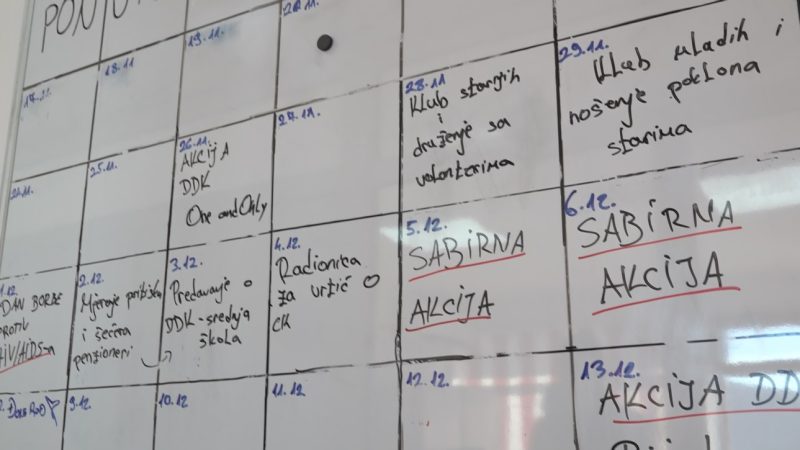 19.11.
20.11.
17.11.
18.11
24.11.
25.11.
26.11.
AKCIJA
DDK
One and Only
27.11.
28.11
Klub starijih
i
druženje sa
volonterima
29.11.
Klub mladih i
nošenje poklona
starima
1.12.
DAN BORBE
PROTIV
HIV/AIDS-a
2.12.
Mjerenje pritiska
i šećera
penzioneri
3.12.
Predavanje o
DDK-srednja
škola
4.12.
Radionica
za vrtić o
CK
5.12.
SABIRNA
AKCIJA
6.12.
SABIRNA
AKCIJA
9.12
10.12
11.12.
12.12.
13.12.
AKCIJA DD